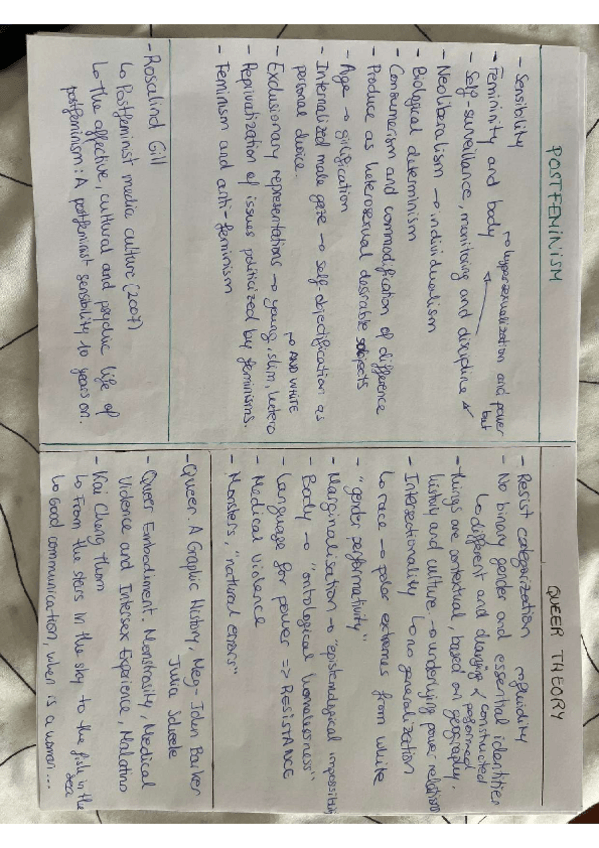 POSTFEMINISM
- Sensibility
→ hypersexualization and power
but
- Femininity and body
- Self-surveillance, monitoring and discipline
- Neoliberalism → individualism
- Biological determinism
- Consumerism and commodification of difference
- Produce as heterosexual desirable subjects
- Age → girlification
- Internalized male gaze → self objectification as
personal choice.
- Exclusionary representations → young, slim, hetero
↳ AND WHITE
- Reprivatization of issues politicized by feminisms.
- Feminism and anti-feminism
- Rosalind Gill
↳ Postfeminist media culture (2007)
↳ The affective, cultural and psychic life of
postfeminism: A postfeminist sensibility 10 years on.
QUEER THEORY
- Resist categorization → fluidity
- No binary gender and essential identities
↳ different and changing & constructed
performed
- things are contextual, based on geography,
history and culture → underlying power relations
- Intersectionality ↳ no generalization
↳ race → polar extremes from white
- "gender performativity"
- Marginalisation → "epistemological impossibility
- Body → "ontological homelessness"
- Language for power => RESISTANCE
- Medical violence
- Monsters, "natural errors"
- Queer. A Graphic History, Meg-John Barker
Julia Scheele
- Queer Embodiment. Monstrosity, Medical
Violence and Intersex Experience, Malatino
- Kai Cheng Thom
↳ From the stars in the sky to the fish in the
sea
↳ Good communication, when is a woman...